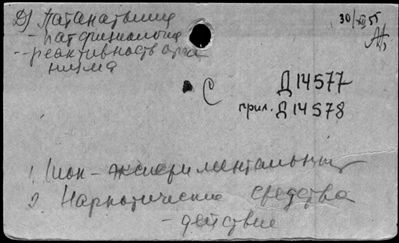 Д) Патанатомия
- патфизиология
- реактивность орга
низма
30/XII 55
С
Д 14577
прил. Д 14578
1. Шок - экспериментальный
2. Наркотические средства
- действие